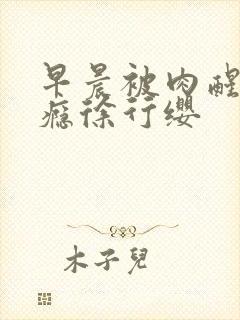 早晨被肉醒
瘾徐行缨
木子兒